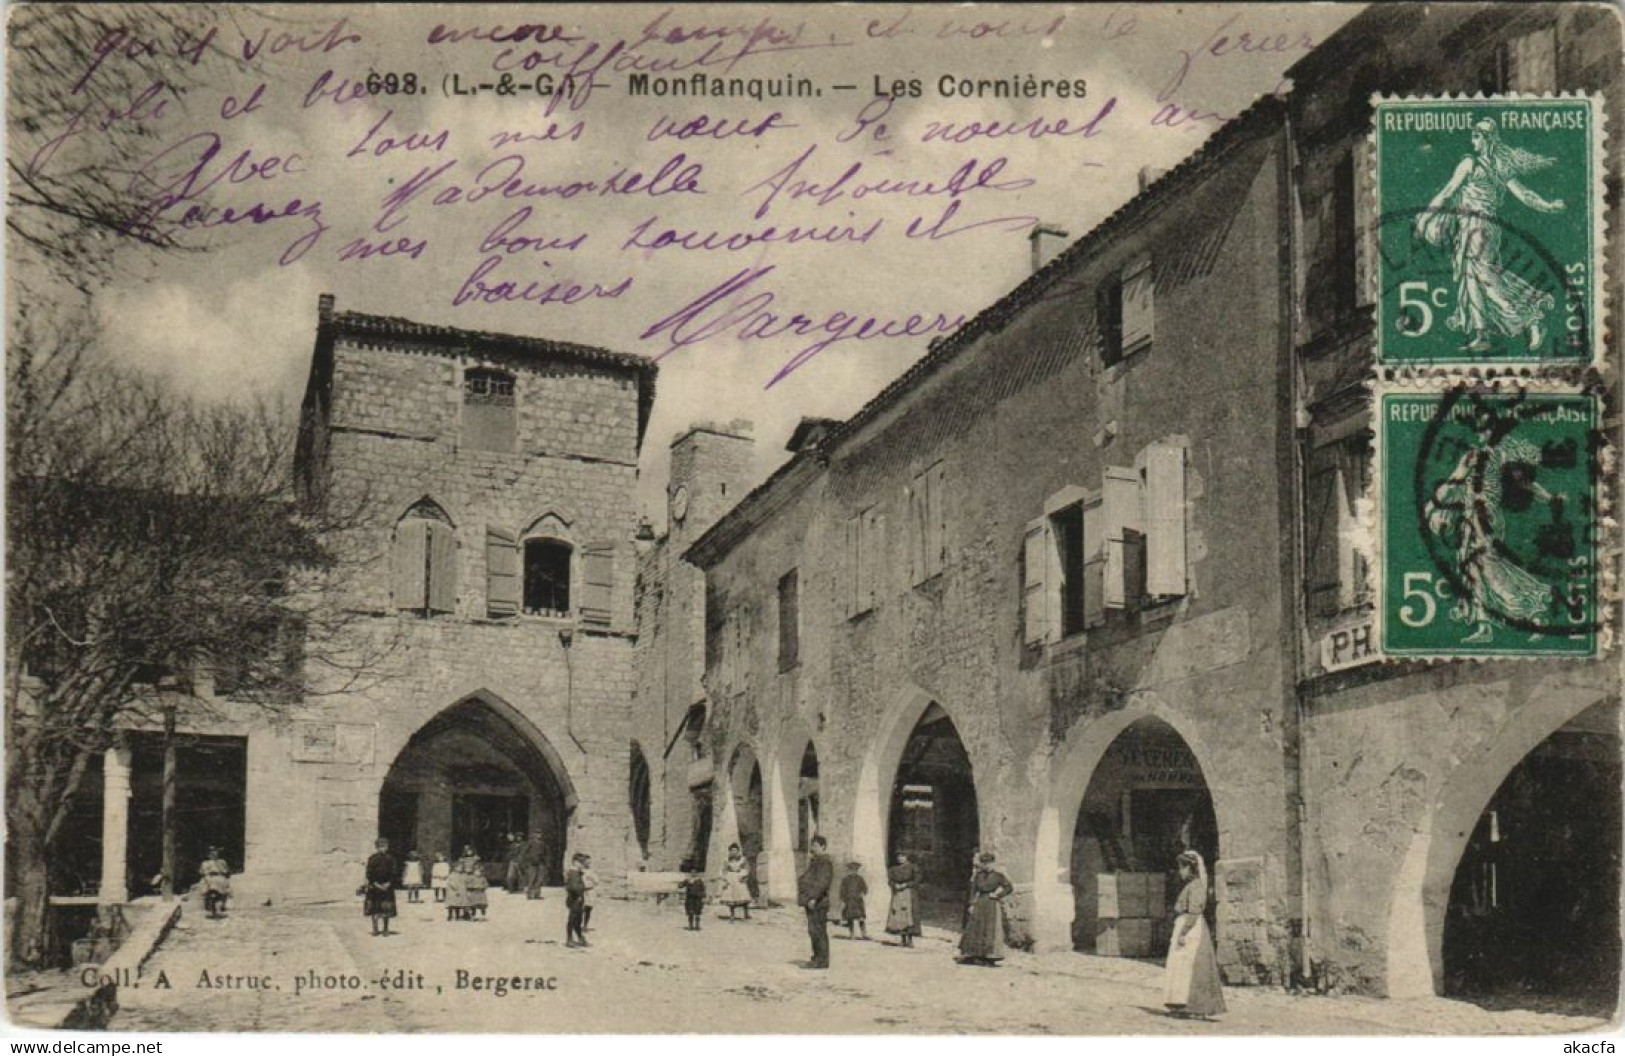 qu'il soit encore temps. et vous
joli et bien coiffant
698. (L.-&-G.) – Monflanquin. — Les Cornières
Avec tous mes vœux de nouvel an
Recevez Mademoiselle Antoinette
mes bons souvenirs et
baisers
Marguer
REPUBLIQUE FRANÇAISE
5c
POSTES
REPUBLIQUE FRANÇAISE
5c
POSTES
PH
Coll. A Astruc, photo.-édit., Bergerac
akacfa